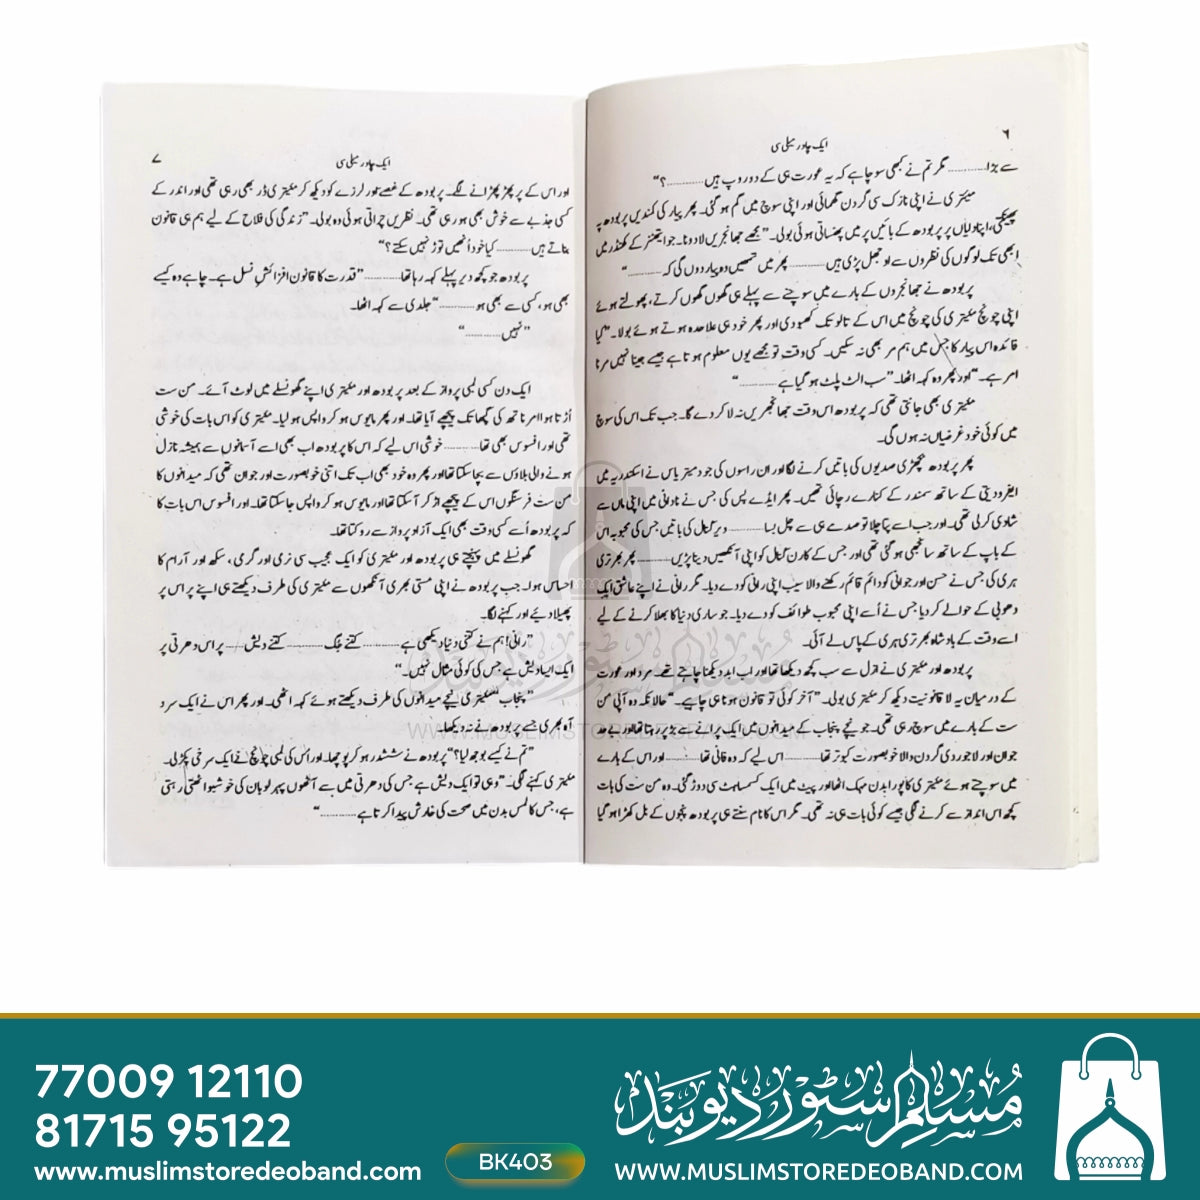 ۶
ایک چادر میلی سی
سے بڑا............ مگر تم نے کبھی سوچا ہے کہ یہ عورت ہی کے دو روپ ہیں............؟“
میتری نے اپنی نازک سی گردن گھمائی اور اپنی سوچ میں گم ہو گئی۔ پھر پیار کی کمندیں پربودھ پہ
پھینکتی، اپنا دایاں پر پربودھ کے بائیں پر میں پھنساتی ہوئی بولی۔ ”مجھے جھانجریں لا دو نا۔ جو ایتھنز کے کھنڈر میں
ابھی تک لوگوں کی نظروں سے اوجھل پڑی ہیں............ پھر میں تمھیں وہ پیار دوں گی کہ............“
پربودھ نے جھانجروں کے بارے میں سوچنے سے پہلے ہی گھوں گھوں کرتے، پھولتے ہوئے
اپنی چونچ میتری کی چونچ میں اس کے تالو تک کھبو دی اور پھر خود ہی علاحدہ ہوتے ہوئے بولا۔ ”کیا
فائدہ اس پیار کا جس میں ہم مر بھی نہ سکیں۔ کسی وقت تو مجھے یوں معلوم ہوتا ہے جیسے جینا نہیں مرنا
امر ہے۔“ اور پھر وہ کہہ اٹھا۔ ”سب الٹ پلٹ ہو گیا ہے............“
میتری بھی جانتی تھی کہ پربودھ اس وقت جھانجھریں نہ لا کر دے گا۔ جب تک اس کی سوچ
میں کوئی خود غرضیاں نہ ہوں گی۔
پھر پربودھ بچھڑی صدیوں کی باتیں کرنے لگا اور ان راسوں کی جو دمیتریاس نے اسکندریہ میں
ایفرودیتی کے ساتھ سمندر کے کنارے رچائی تھیں۔ پھر ایڈے پس کی جس نے نادانی میں اپنی ماں سے
شادی کر لی تھی۔ اور جب اسے پتا چلا تو صدمے ہی سے چل بسا............ ویر کنال کی باتیں جس کی محبوبہ اس
کے باپ کے ساتھ سانجھی ہو گئی تھی اور جس کے کارن کنال کو اپنی آنکھیں دینا پڑیں............ پھر بھرتری
ہری کی جس نے حسن اور جوانی کو دائم قائم رکھنے والا سیب اپنی رانی کو دے دیا۔ مگر رانی نے اپنے عاشق ایک
دھوبی کے حوالے کر دیا جس نے اُسے اپنی محبوب طوائف کو دے دیا۔ جو ساری دنیا کا بھلا کرنے کے لیے
اسے وقت کے بادشاہ بھرتری ہری کے پاس لے آئی۔
پربودھ اور میتری نے ازل سے سب کچھ دیکھا تھا اور اب ابد دیکھنا چاہتے تھے۔ مرد اور عورت
کے درمیان یہ لا قانونیت دیکھ کر میتری بولی۔ ”آخر کوئی تو قانون ہونا ہی چاہیے۔“ حالانکہ وہ آپی من
ست کے بارے میں سوچ رہی تھی۔ جو نیچے پنجاب کے میدانوں میں ایک پرانے سے بڑ پر رہتا تھا اور بے حد
جوان اور لاجوردی گردن والا خوبصورت کبوتر تھا............ اس لیے کہ وہ فانی تھا............ اور اس کے بارے
میں سوچتے ہوئے میتری کا پورا بدن مہک اٹھا اور پیٹ میں ایک کسمساہٹ سی دوڑ گئی۔ وہ من ست کی بات
کچھ اس انداز سے کرنے لگی جیسے کوئی بات ہی نہ تھی۔ مگر اس کا نام سنتے ہی پربودھ پنجوں کے بل کھڑا ہو گیا
۷
ایک چادر میلی سی
اور اس کے پر پھڑ پھڑانے لگے۔ پربودھ کے غصے اور لرزے کو دیکھ کر میتری ڈر بھی رہی تھی اور اندر کے
کسی جذبے سے خوش بھی ہو رہی تھی۔ نظریں چراتی ہوئی وہ بولی۔ ”زندگی کی فلاح کے لیے ہم ہی قانون
بناتے ہیں............ کیا خود اُنھیں توڑ نہیں سکتے؟“
پربودھ جو کچھ دیر پہلے کہہ رہا تھا............ ”قدرت کا قانون افزائشِ نسل ہے۔ چاہے وہ کیسے
بھی ہو، کسی سے بھی ہو............“ جلدی سے کہہ اٹھا۔
”نہیں............“
ایک دن کسی لمبی پرواز کے بعد پربودھ اور میتری اپنے گھونسلے میں لوٹ آئے۔ من ست
اُڑتا ہوا امر ناتھ کی گپھا تک پیچھے آیا تھا۔ اور پھر مایوس ہو کر واپس ہو لیا۔ میتری کو اس بات کی خوشی
تھی اور افسوس بھی تھا............ خوشی اس لیے کہ اس کا پربودھ اب بھی اسے آسمانوں سے ہمیشہ نازل
ہونے والی بلاؤں سے بچا سکتا تھا اور پھر وہ خود بھی اب تک اتنی خوبصورت اور جوان تھی کہ میدانوں کا
من ست فرسنگوں اس کے پیچھے اڑ کر آ سکتا تھا اور مایوس ہو کر واپس جا سکتا تھا۔ اور افسوس اس بات کا
کہ پربودھ اُسے کسی وقت بھی ایک آزاد پرواز سے روکتا تھا۔
گھونسلے میں پہنچتے ہی پربودھ اور میتری کو ایک عجیب سی نرمی اور گرمی، سکھ اور آرام کا
احساس ہوا۔ جب پربودھ نے اپنی مستی بھری آنکھوں سے میتری کی طرف دیکھتے ہی اپنے پر اس پر
پھیلا دیے اور کہنے لگا۔
”رانی! ہم نے کتنی دنیا دیکھی ہے............ کتنے جگ............ کتنے دیش...... پر اس دھرتی پر
ایک ایسا دیش ہے جس کی کوئی مثال نہیں۔“
”پنجاب“ میتری نیچے میدانوں کی طرف دیکھتے ہوئے کہہ اٹھی۔ اور پھر اس نے ایک سرد
آہ بھری جسے پربودھ نے نہ دیکھا۔
”تم نے کیسے بوجھ لیا؟“ پربودھ نے ششدر ہو کر پوچھا۔ اور اس کی لمبی چونچ نے ایک سرخی پکڑ لی۔
میتری کہنے لگی۔ ”وہی تو ایک دیش ہے جس کی دھرتی میں سے آٹھوں پہر لوبان کی خوشبو اٹھتی رہتی
ہے، جس کا لمس بدن میں صحت کی خارش پیدا کرتا ہے............“
مسلم سٹور دیوبند
WWW.MUSLIMSTOREDEOBAND.COM
77009 12110
81715 95122
www.muslimstoredeoband.com
BK403
مسلم سٹور دیوبند
WWW.MUSLIMSTOREDEOBAND.COM